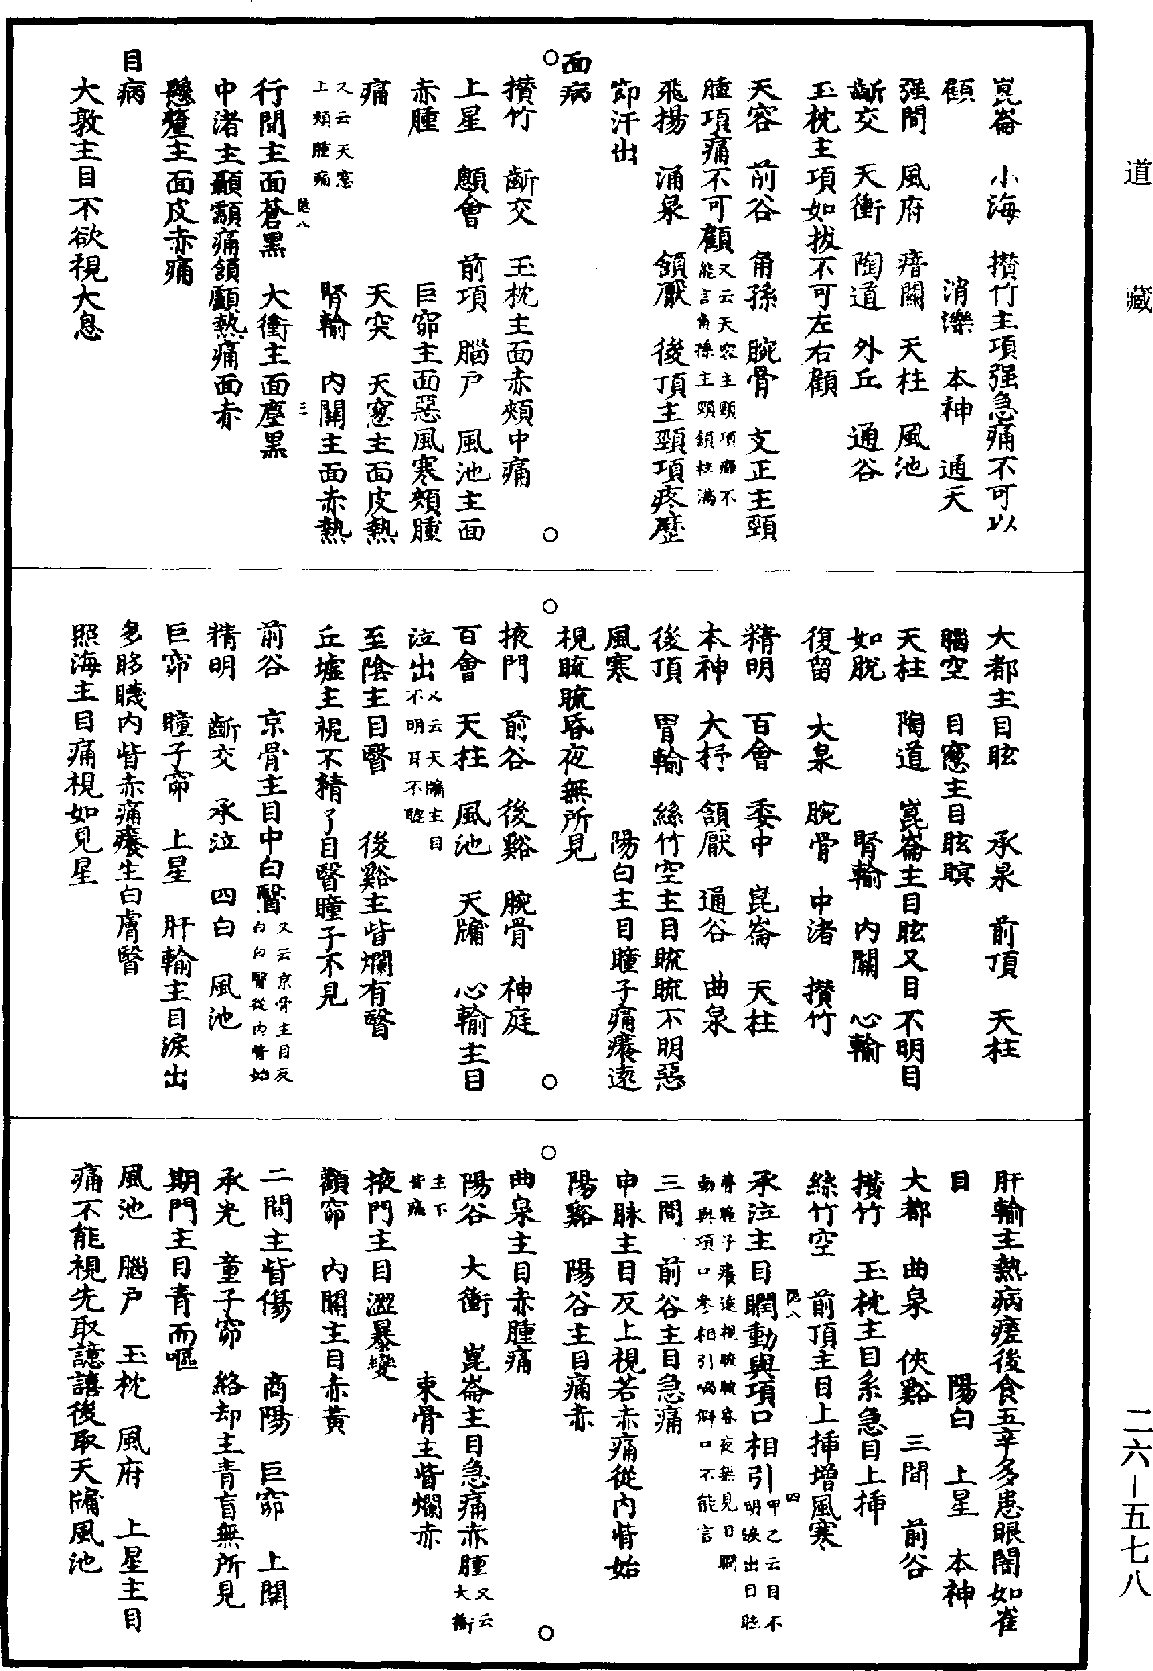 道藏
二六—五七八
崑崙　小海　攢竹主項强急痛不可以
顧　　消濼　本神　通天
强間　風府　瘖關　天柱　風池
齗交　天衝　陶道　外丘　通谷
玉枕主項如拔不可左右顧
天容　前谷　角孫　腕骨　支正主頸
腫項痛不可顧又云天容主頸項癰不能言角孫主頸頷柱滿
飛揚　涌泉　頷厭　後頂主頸項疼歷
節汗出
面病
攢竹　齗交　玉枕主面赤頰中痛
上星　顖會　前項　腦戶　風池主面
赤腫　　巨窌主面惡風寒頰腫
痛　　天突　天窻主面皮熱
又云天窻上頰腫痛　　腎輸　內關主面赤熱
行間主面蒼黑　大衝主面塵黑
中渚主顳顬痛頷顱熱痛面赤
懸釐主面皮赤痛
目病
大敦主目不欲視大息
大都主目眩　　承泉　前頂　天柱
腦空　目窻主目眩瞑
天柱　陶道　崑崙主目眩又目不明目
如脫　　腎輸　內關　心輸
復留　大泉　腕骨　中渚　攢竹
精明　百會　委中　崑崙　天柱
本神　大抒　頷厭　通谷　曲泉
後頂　胃輸　絲竹空主目䀮䀮不明惡
風寒　　陽白主目瞳子痛癢遠
視䀮䀮昏夜無所見
掖門　前谷　後谿　腕骨　神庭
百會　天柱　風池　天牖　心輸主目
泣出又云天牖主目不明耳不聦
至陰主目瞖　　後谿主眥爛有瞖
丘墟主視不精了目瞖瞳子不見
前谷　京骨主目中白瞖又云京骨主目反白白瞖從內眥始
精明　齗交　承泣　四白　風池
巨窌　瞳子窌　上星　肝輸主目淚出
多眵䁾內眥赤痛癢生白膚瞖
照海主目痛視如見星
肝輸主熱病瘥後食五辛多患眼闇如雀
目　　陽白　上星　本神
大都　曲泉　俠谿　三間　前谷
攢竹　玉枕主目系急目上插
絲竹空　前頂主目上插增風寒
承泣主目瞤動與項口相引甲乙云目不明淚出目眩瞢瞳子癢遠視䀮䀮昏夜無見目瞤動與項口參相引喎僻口不能言
三間　前谷主目急痛
申脉主目反上視若赤痛從內眥始
陽谿　陽谷主目痛赤
曲泉主目赤腫痛
陽谷　大衝　崑崙主目急痛赤腫又云大衝主下眥痛
　　束骨主眥爛赤
掖門主目澀暴變
顴窌　內關主目赤黃
二間主眥傷　　商陽　巨窌　上關
承光　童子窌　絡却主青盲無所見
期門主目青而嘔
風池　腦戶　玉枕　風府　上星主目
痛不能視先取譩譆後取天牖風池